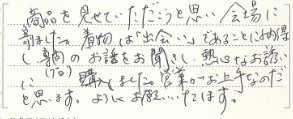 商品を見せていただこうと思い会場に
寄りました。着物は「出会い」であることに納得
し、専門のお話をお聞きし、熱心なお話い
(プロ)
に購入しました。営業がお上手なのだ
と思います。ようにお願いいたします。